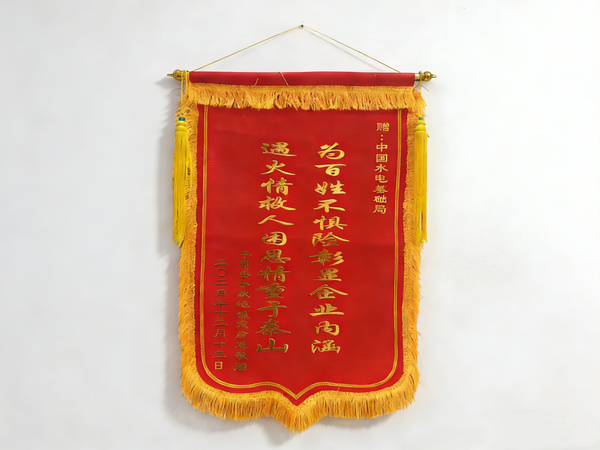 赠：中国水电基础局
为百姓不惧险彰显企业内涵
遇火情救人困恩情重于泰山
二〇二五年十二月十三日